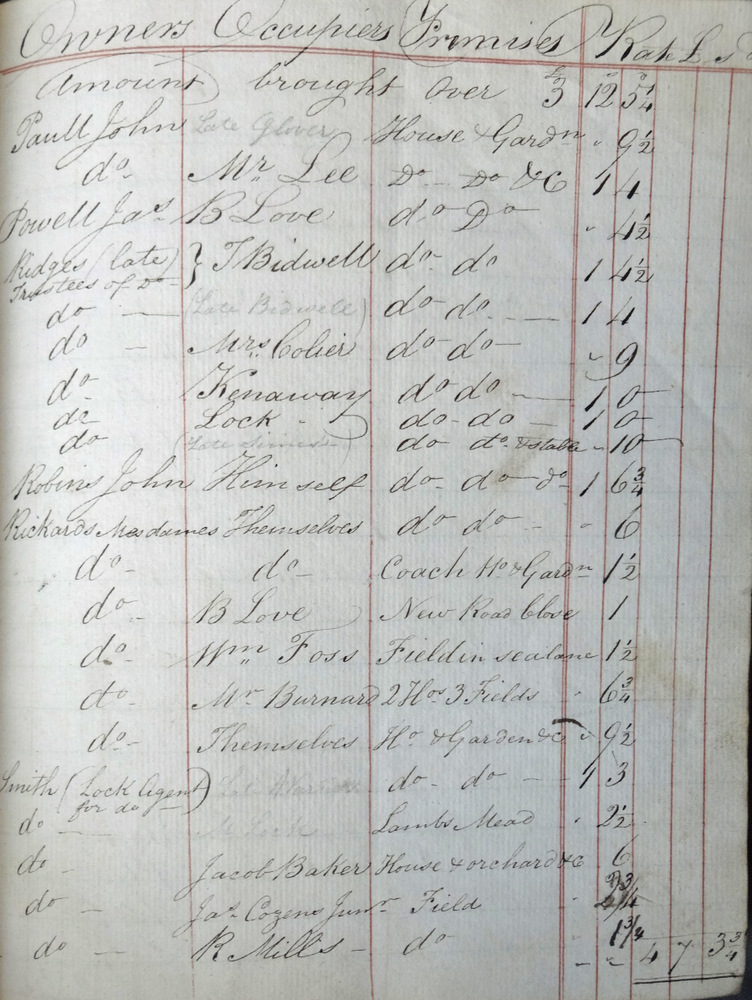 Owners Occupiers Premises Rate L S D
Amount brought Over £3 12 5¼
Paull John Late Glover House & Gardn " 9½
do Mr Lee Do Do &C 1 4
Powell Jas B Love do Do " 4½
Ridges (late) Trustees of Do } T Bidwell do do 1 4½
do (Late Bidwell) do do 1 4
do Mrs Colier do do " 9
do Kenaway do do 1 0
do Lock do do 1 0
do (Late) do do & stable " 10
Robins John Himself do do do 1 6¾
Rickards Mesdames Themselves do do " 6
do do Coach Ho & Gardn 1½
do B Love New Road Close 1
do Wm Foss Field in sea lane 1½
do Mr Burnard 2 Hos 3 Fields " 6¾
do Themselves Ho & Garden &C " 9½
Smith (Lock Agent for do) Late do do 1 3
do M Lock Lambs Mead " 2½
do Jacob Baker House & orchard &c 6
do Jas Cozens Junr Field "
do R Mills do " 1¾
4 7 3¾